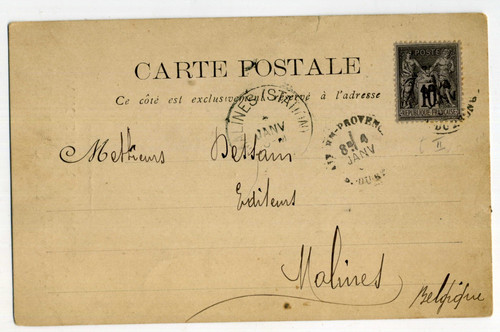 CARTE POSTALE
Ce côté est exclusivement réservé à l'adresse
POSTES
10
REPUBLIQUE FRANÇAISE
MALINES (STATION)
JANV
EN-PROVENCE
8E 4
JANV
Messieurs Dessain
Editeurs
Malines
Belgique